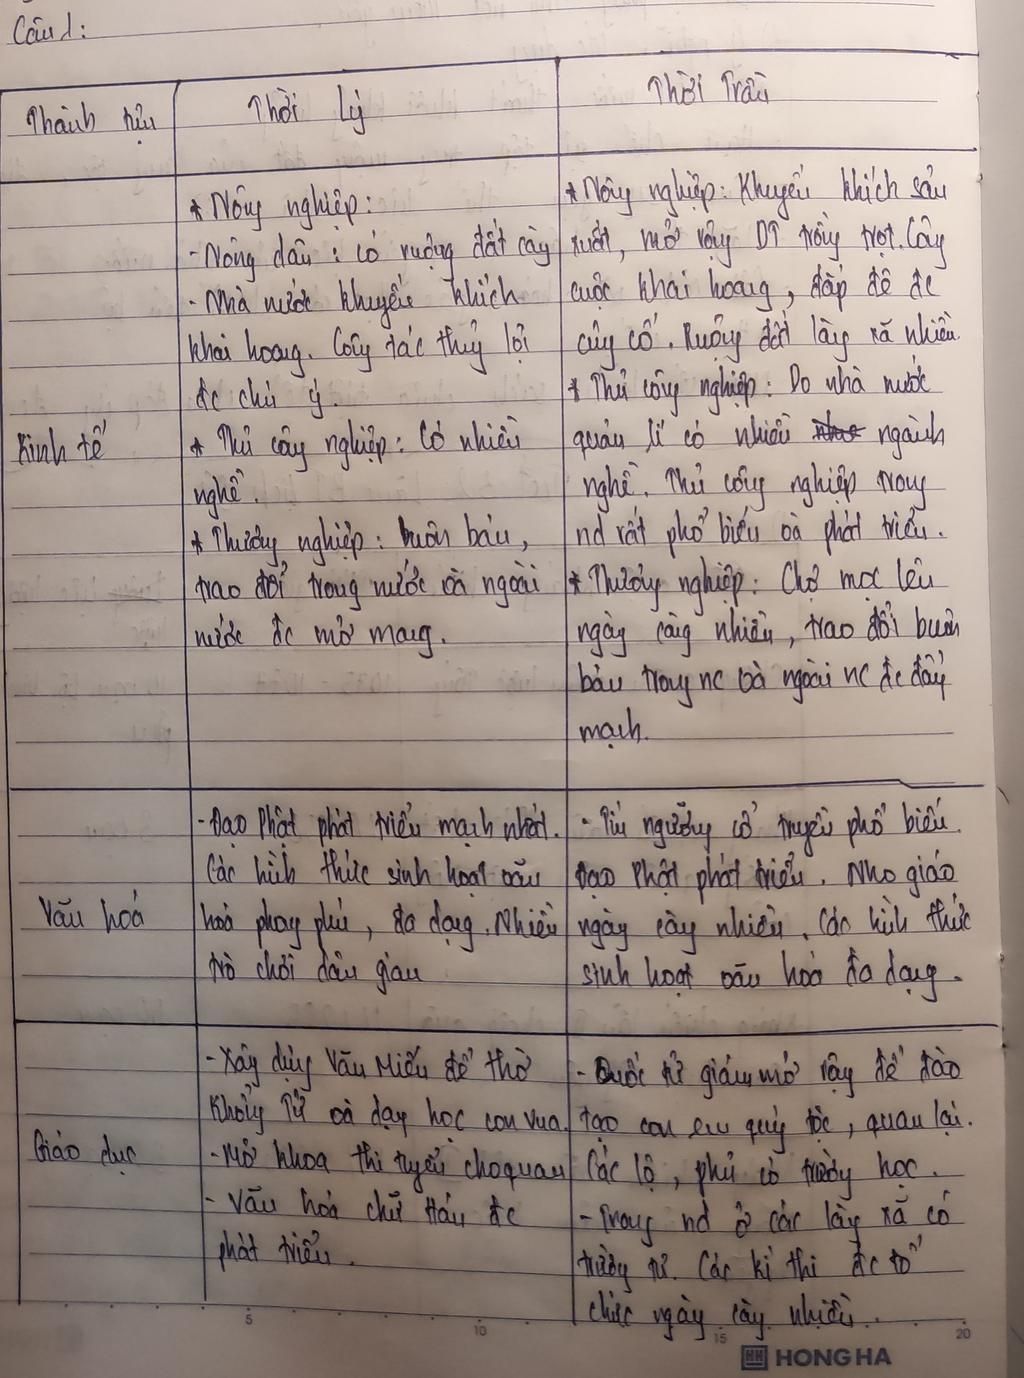 Câu 1:
Thành tựu
Thời Lý
Thời Trần
Kinh tế
* Nông nghiệp:
- Nông dân: có ruộng đất cày
- Nhà nước khuyến khích
khai hoang. Công tác thuỷ lợi
đc chú ý.
* Thủ công nghiệp: Có nhiều
nghề.
* Thương nghiệp: buôn bán,
trao đổi trong nước và ngoài
nước đc mở mang.
* Nông nghiệp: Khuyến khích sản
xuất, mở rộng DT trồng trọt. Công
cuộc khai hoang, đắp đê đc
củng cố. Ruộng đất làng xã nhiều.
* Thủ công nghiệp: Do nhà nước
quản lí có nhiều ngành
nghề. Thủ công nghiệp trong
nd rất phổ biến và phát triển.
* Thương nghiệp: Chợ mọc lên
ngày càng nhiều, trao đổi buôn
bán trong nc và ngoài nc đc đẩy
mạnh.
Văn hoá
- Đạo Phật phát triển mạnh nhất.
Các hình thức sinh hoạt văn
hoá phong phú, đa dạng. Nhiều
trò chơi dân gian
- Tín ngưỡng cổ truyền phổ biến.
Đạo Phật phát triển. Nho giáo
ngày càng nhiều. Các hình thức
sinh hoạt văn hoá đa dạng.
Giáo dục
- Xây dựng Văn Miếu để thờ
Khổng Tử và dạy học con vua.
- Mở khoa thi tuyển cho quan
- Văn hoá chữ Hán đc
phát triển.
- Quốc tử giám mở rộng để đào
tạo con em quý tộc, quan lại.
Các lộ, phủ có trường học.
- Trong nd ở các làng xã có
trường tư. Các kì thi đc tổ
chức ngày càng nhiều.
5 10 15 20
HONG HA